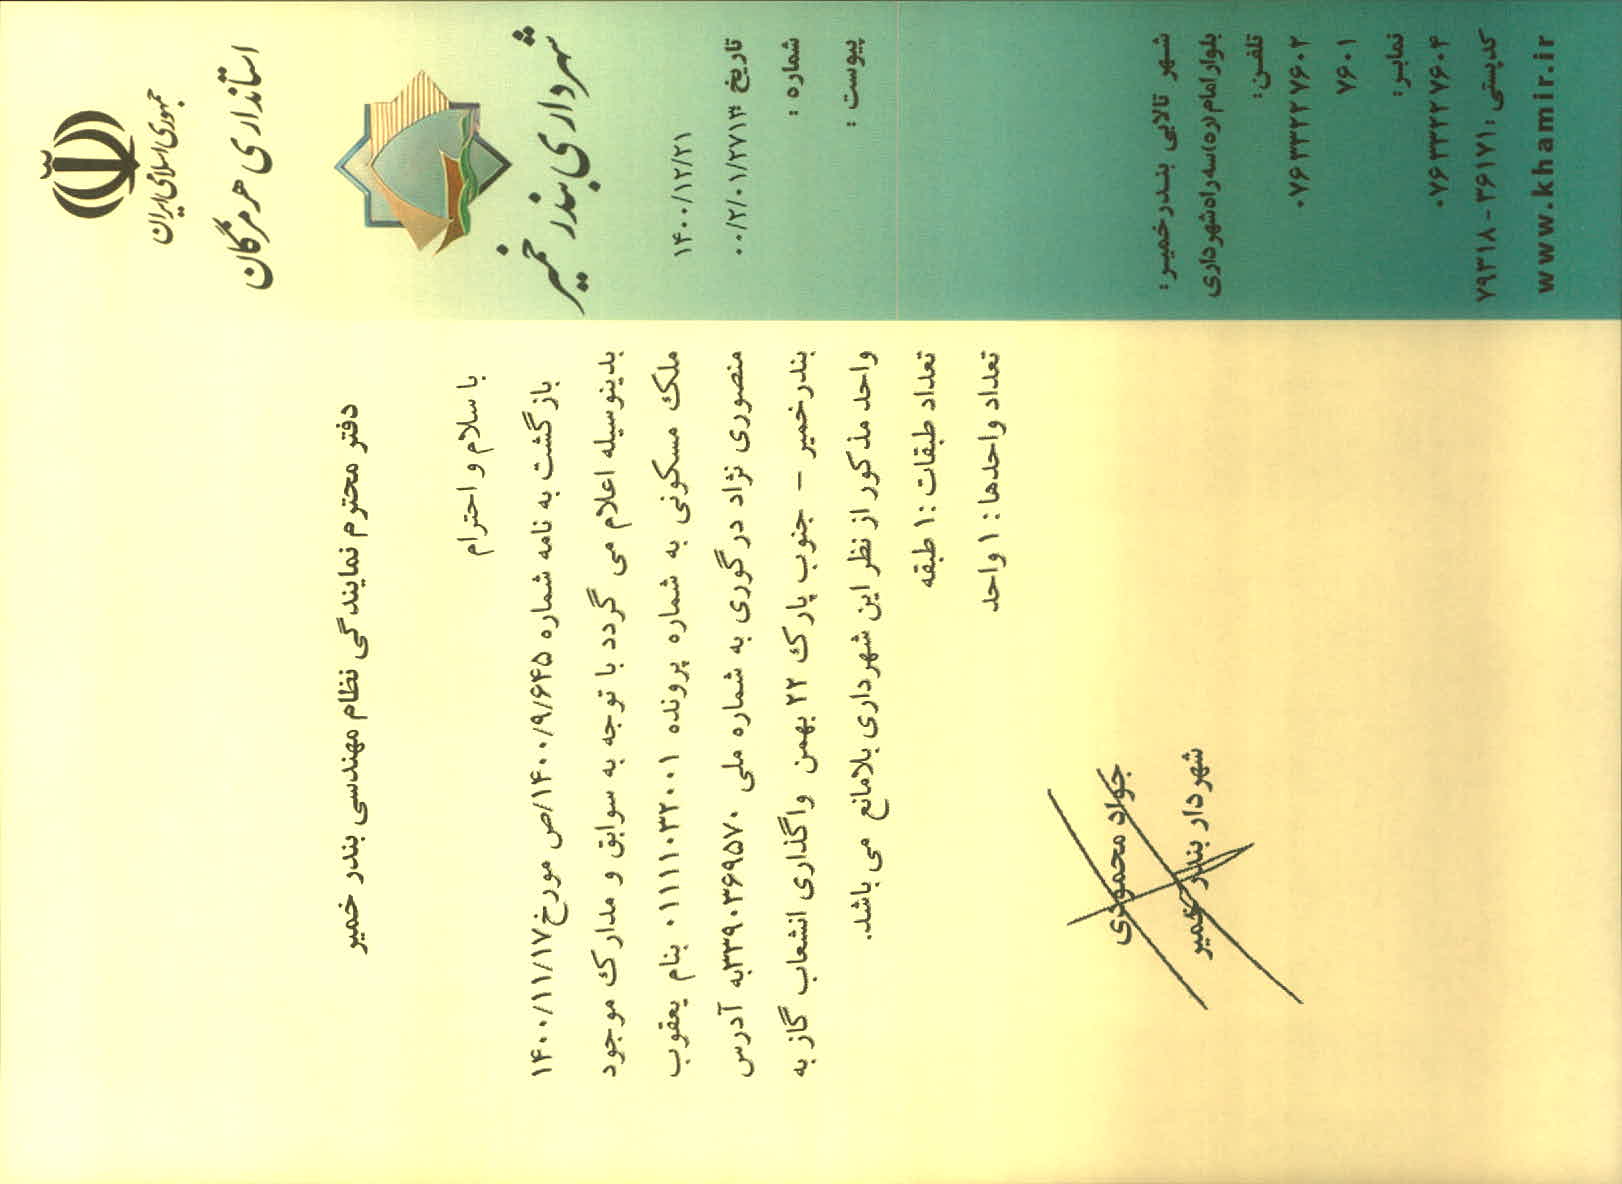 جمهوری اسلامی ایران
استانداری هرمزگان
شهرداری بندر خمیر
۱۴۰۰/۱۲/۲۱
تاریخ ۰۰/۲/۰۱/۲۷۱۳
شماره :
پیوست :
دفتر محترم نمایندگی نظام مهندسی بندر خمیر
با سلام و احترام
بازگشت به نامه شماره ۱۴۰۰/۹/۶۴۵/ص مورخ ۱۴۰۰/۱۱/۱۷
بدینوسیله اعلام می گردد با توجه به سوابق و مدارک موجود
ملک مسکونی به شماره پرونده ۰۱۱۱۱۰۳۲۰۰۱ بنام یعقوب
منصوری نژاد درگوری به شماره ملی ۳۳۹۰۳۶۹۵۷۰به آدرس
بندرخمیر - جنوب پارک ۲۲ بهمن واگذاری انشعاب گاز به
واحد مذکور از نظر این شهرداری بلامانع می باشد.
تعداد طبقات :۱ طبقه
تعداد واحدها : ۱ واحد
جواد محمودی
شهردار بندر خمیر
شهر تالابی بندرخمیر:
بلوار امام(ره)سه راه شهرداری
تلفن:
۰۷۶۳۳۲۲۷۶۰۲
۷۶۰۱
نمابر:
۰۷۶۳۳۲۲۷۶۰۴
کدپستی: ۳۶۱۷۱ - ۷۹۳۱۸
www.khamir.ir